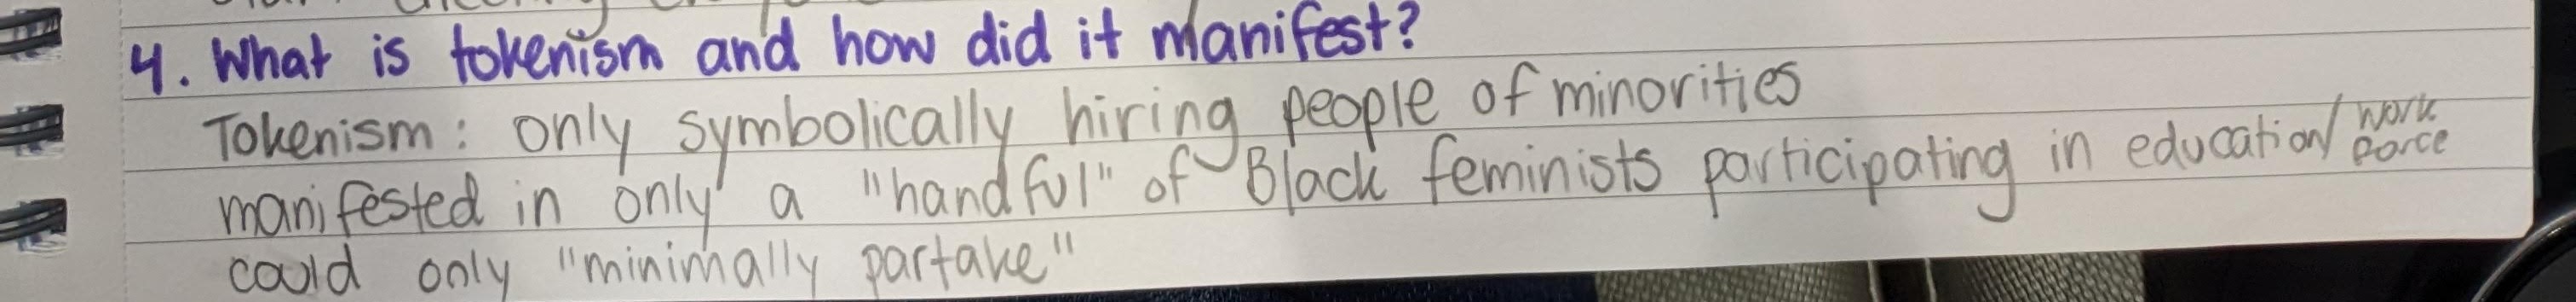 4. What is tokenism and how did it manifest?
Tokenism: only symbolically hiring people of minorities
manifested in only a "handful" of Black feminists participating in education/work force
could only "minimally partake"